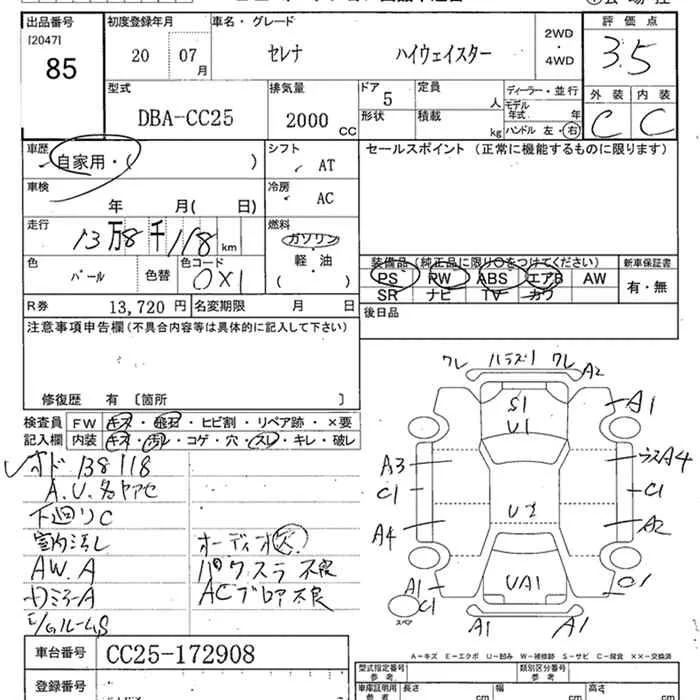 出品番号
[2047]
85
初度登録年月
20 07月
車名・グレード
セレナ ハイウェイスター
2WD
・
4WD
評価点
3.5
型式
DBA-CC25
排気量
2000 CC
ドア
5
形状
定員
人
積載
kg
ディーラー・並行
モデル年式 年
ハンドル 左・右
外装 内装
C C
車歴
自家用・( )
シフト
AT
セールスポイント (正常に機能するものに限ります)
車検
年 月( 日)
冷房
AC
走行
13万8千118km
燃料
ガソリン
軽・油
( )
色
パール
色替
色コード
0X1
装備品(純正品に限り○をつけてください)
PS PW ABS エアB AW
SR ナビ TV カワ
新車保証書
有・無
R券 13,720円
名変期限 月 日
後日品
注意事項申告欄(不具合内容等は具体的に記入して下さい)
修復歴 有 [箇所 ]
検査員 FW キズ・飛石・ヒビ割・リペア跡・×要
記入欄 内装 キズ・汚レ・コゲ・穴・スレ・キレ・破レ
138118
下廻りC
AW.A
オーディオ欠
パワスラ不良
不良
ワレ ワレ A2
S1
U1
A1
A3
C1
A4
A4
C1
A2
UA1
A1
C1
スペア
A1 A1
A-キズ E-エクボ U-凹み W-補修跡 S-サビ C-腐食 ××-交換済
車台番号 CC25-172908
登録番号
型式指定番号
参考
類別区分番号
参考
車庫証明用
参考
長さ cm
幅 cm
高さ cm